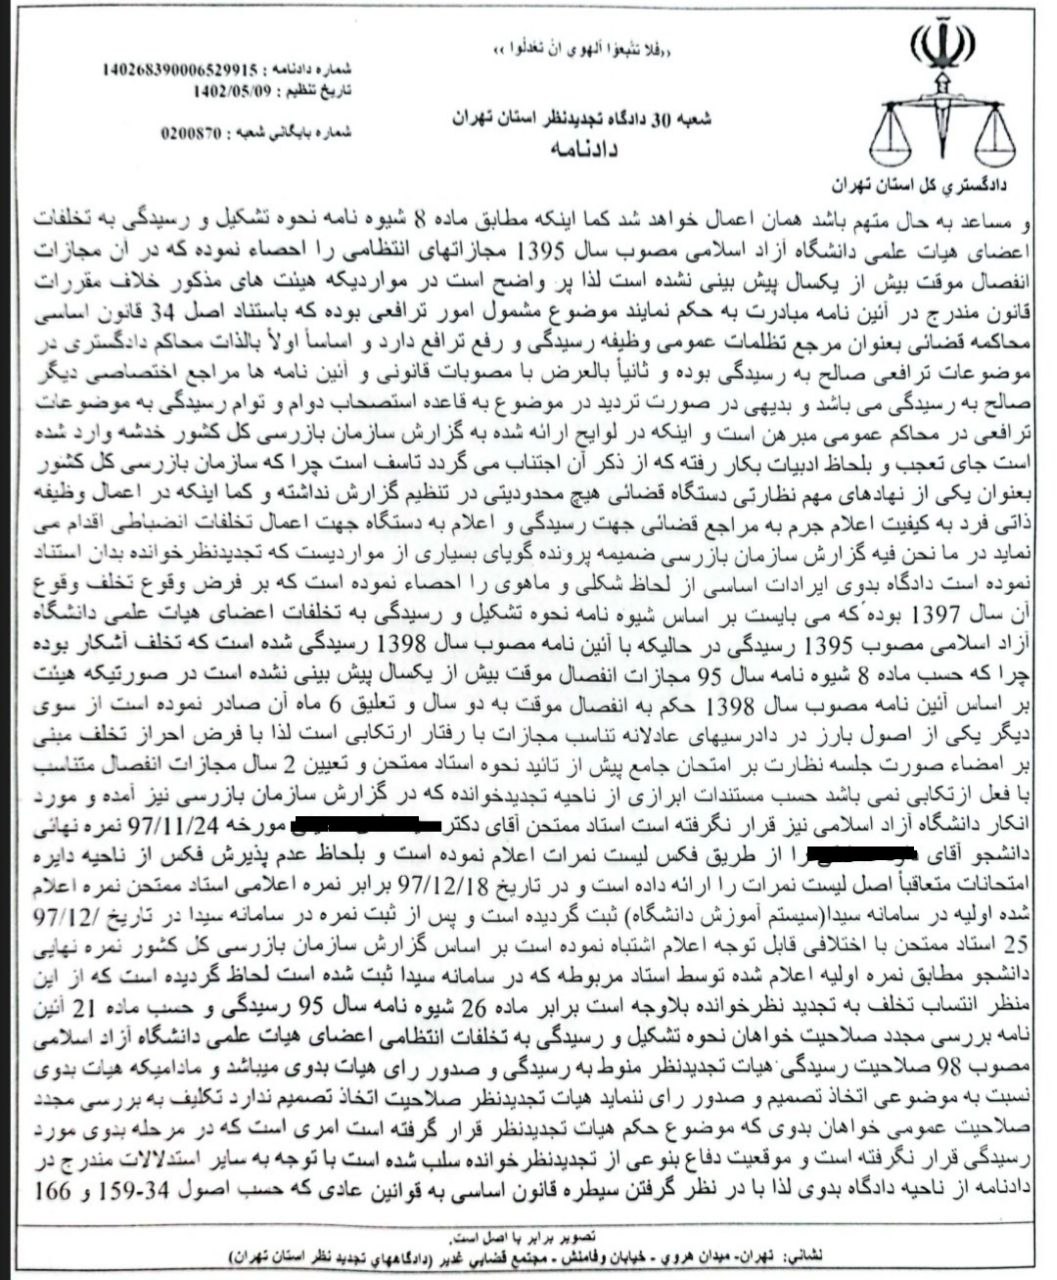 «فلا تتبعوا الهوی ان تعدلوا»
شماره دادنامه : 140268390006529915
تاریخ تنظیم : 1402/05/09
شماره بایگانی شعبه : 0200870
شعبه 30 دادگاه تجدیدنظر استان تهران
دادنامه
دادگستری کل استان تهران
و مساعد به حال متهم باشد همان اعمال خواهد شد کما اینکه مطابق ماده 8 شیوه نامه نحوه تشکیل و رسیدگی به تخلفات
اعضای هیات علمی دانشگاه آزاد اسلامی مصوب سال 1395 مجازاتهای انتظامی را احصاء نموده که در آن مجازات
انفصال موقت بیش از یکسال پیش بینی نشده است لذا پر واضح است در مواردیکه هیئت های مذکور خلاف مقررات
قانون مندرج در آئین نامه مبادرت به حکم نمایند موضوع مشمول امور ترافعی بوده که باستناد اصل 34 قانون اساسی
محاکمه قضائی بعنوان مرجع تظلمات عمومی وظیفه رسیدگی و رفع ترافع دارد و اساسأ اولأ بالذات محاکم دادگستری در
موضوعات ترافعی صالح به رسیدگی بوده و ثانیأ بالعرض با مصوبات قانونی و آئین نامه ها مراجع اختصاصی دیگر
صالح به رسیدگی می باشد و بدیهی در صورت تردید در موضوع به قاعده استصحاب دوام و توام رسیدگی به موضوعات
ترافعی در محاکم عمومی مبرهن است و اینکه در لوایح ارائه شده به گزارش سازمان بازرسی کل کشور خدشه وارد شده
است جای تعجب و بلحاظ ادبیات بکار رفته که از ذکر آن اجتناب می گردد تاسف است چرا که سازمان بازرسی کل کشور
بعنوان یکی از نهادهای مهم نظارتی دستگاه قضائی هیچ محدودیتی در تنظیم گزارش نداشته و کما اینکه در اعمال وظیفه
ذاتی فرد به کیفیت اعلام جرم به مراجع قضائی جهت رسیدگی و اعلام به دستگاه جهت اعمال تخلفات انضباطی اقدام می
نماید در ما نحن فیه گزارش سازمان بازرسی ضمیمه پرونده گویای بسیاری از مواردیست که تجدیدنظرخوانده بدان استناد
نموده است دادگاه بدوی ایرادات اساسی از لحاظ شکلی و ماهوی را احصاء نموده است که بر فرض وقوع تخلف وقوع
آن سال 1397 بوده که می بایست بر اساس شیوه نامه نحوه تشکیل و رسیدگی به تخلفات اعضای هیات علمی دانشگاه
آزاد اسلامی مصوب 1395 رسیدگی در حالیکه با آئین نامه مصوب سال 1398 رسیدگی شده است که تخلف آشکار بوده
چرا که حسب ماده 8 شیوه نامه سال 95 مجازات انفصال موقت بیش از یکسال پیش بینی نشده است در صورتیکه هیئت
بر اساس آئین نامه مصوب سال 1398 حکم به انفصال موقت به دو سال و تعلیق 6 ماه آن صادر نموده است از سوی
دیگر یکی از اصول بارز در دادرسیهای عادلانه تناسب مجازات با رفتار ارتکابی است لذا با فرض احراز تخلف مبنی
بر امضاء صورت جلسه نظارت بر امتحان جامع پیش از تائید نحوه استاد ممتحن و تعیین 2 سال مجازات انفصال متناسب
با فعل ارتکابی نمی باشد حسب مستندات ابرازی از ناحیه تجدیدخوانده که در گزارش سازمان بازرسی نیز آمده و مورد
انکار دانشگاه آزاد اسلامی نیز قرار نگرفته است استاد ممتحن آقای دکتر مورخه 97/11/24 نمره نهائی
دانشجو آقای را از طریق فکس لیست نمرات اعلام نموده است و بلحاظ عدم پذیرش فکس از ناحیه دایره
امتحانات متعاقبأ اصل لیست نمرات را ارائه داده است و در تاریخ 97/12/18 برابر نمره اعلامی استاد ممتحن نمره اعلام
شده اولیه در سامانه سیدا(سیستم آموزش دانشگاه) ثبت گردیده است و پس از ثبت نمره در سامانه سیدا در تاریخ /97/12
25 استاد ممتحن با اختلافی قابل توجه اعلام اشتباه نموده است بر اساس گزارش سازمان بازرسی کل کشور نمره نهایی
دانشجو مطابق نمره اولیه اعلام شده توسط استاد مربوطه که در سامانه سیدا ثبت شده است لحاظ گردیده است که از این
منظر انتساب تخلف به تجدید نظرخوانده بلاوجه است برابر ماده 26 شیوه نامه سال 95 رسیدگی و حسب ماده 21 آئین
نامه بررسی مجدد صلاحیت خواهان نحوه تشکیل و رسیدگی به تخلفات انتظامی اعضای هیات علمی دانشگاه آزاد اسلامی
مصوب 98 صلاحیت رسیدگی هیات تجدیدنظر منوط به رسیدگی و صدور رای هیات بدوی میباشد و مادامیکه هیات بدوی
نسبت به موضوعی اتخاذ تصمیم و صدور رای ننماید هیات تجدیدنظر صلاحیت اتخاذ تصمیم ندارد تکلیف به بررسی مجدد
صلاحیت عمومی خواهان بدوی که موضوع حکم هیات تجدیدنظر قرار گرفته است امری است که در مرحله بدوی مورد
رسیدگی قرار نگرفته است و موقعیت دفاع بنوعی از تجدیدنظرخوانده سلب شده است با توجه به سایر استدلالات مندرج در
دادنامه از ناحیه دادگاه بدوی لذا با در نظر گرفتن سیطره قانون اساسی به قوانین عادی که حسب اصول 34-159 و 166
تصویر برابر با اصل است.
نشانی: تهران- میدان هروی - خیابان وفامنش - مجتمع قضایی غدیر (دادگاههای تجدید نظر استان تهران)